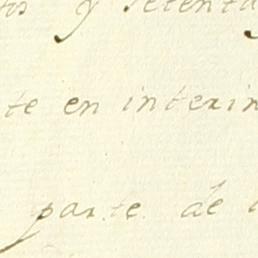 tos y setenta
te en interin
parte de